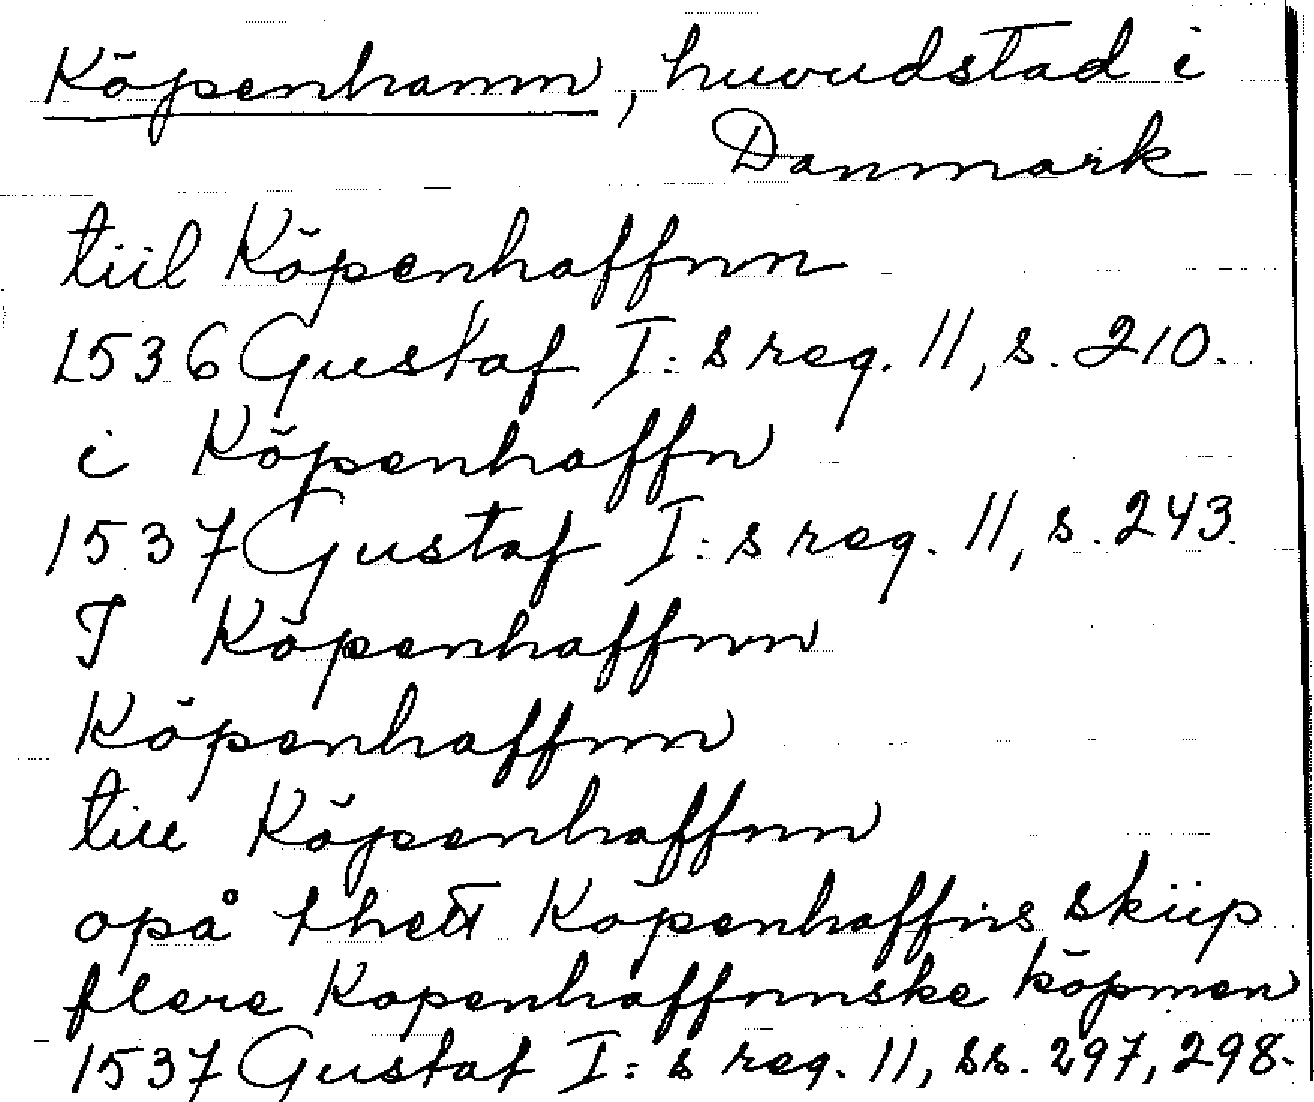 Köpenhamn, huvudstad i
Danmark
tiil Köpenhaffnn
1536 Gustaf I:s reg. 11, s. 210.
i Köpenhaffn
1537 Gustaf I:s reg. 11, s. 243.
I Köpenhaffnn
Köpenhaffnn
till Köpenhaffnn
opå thett Köpenhaffns skiip
flere Kopenhaffnnske köpmen
1537 Gustaf I:s reg. 11, ss. 297, 298.